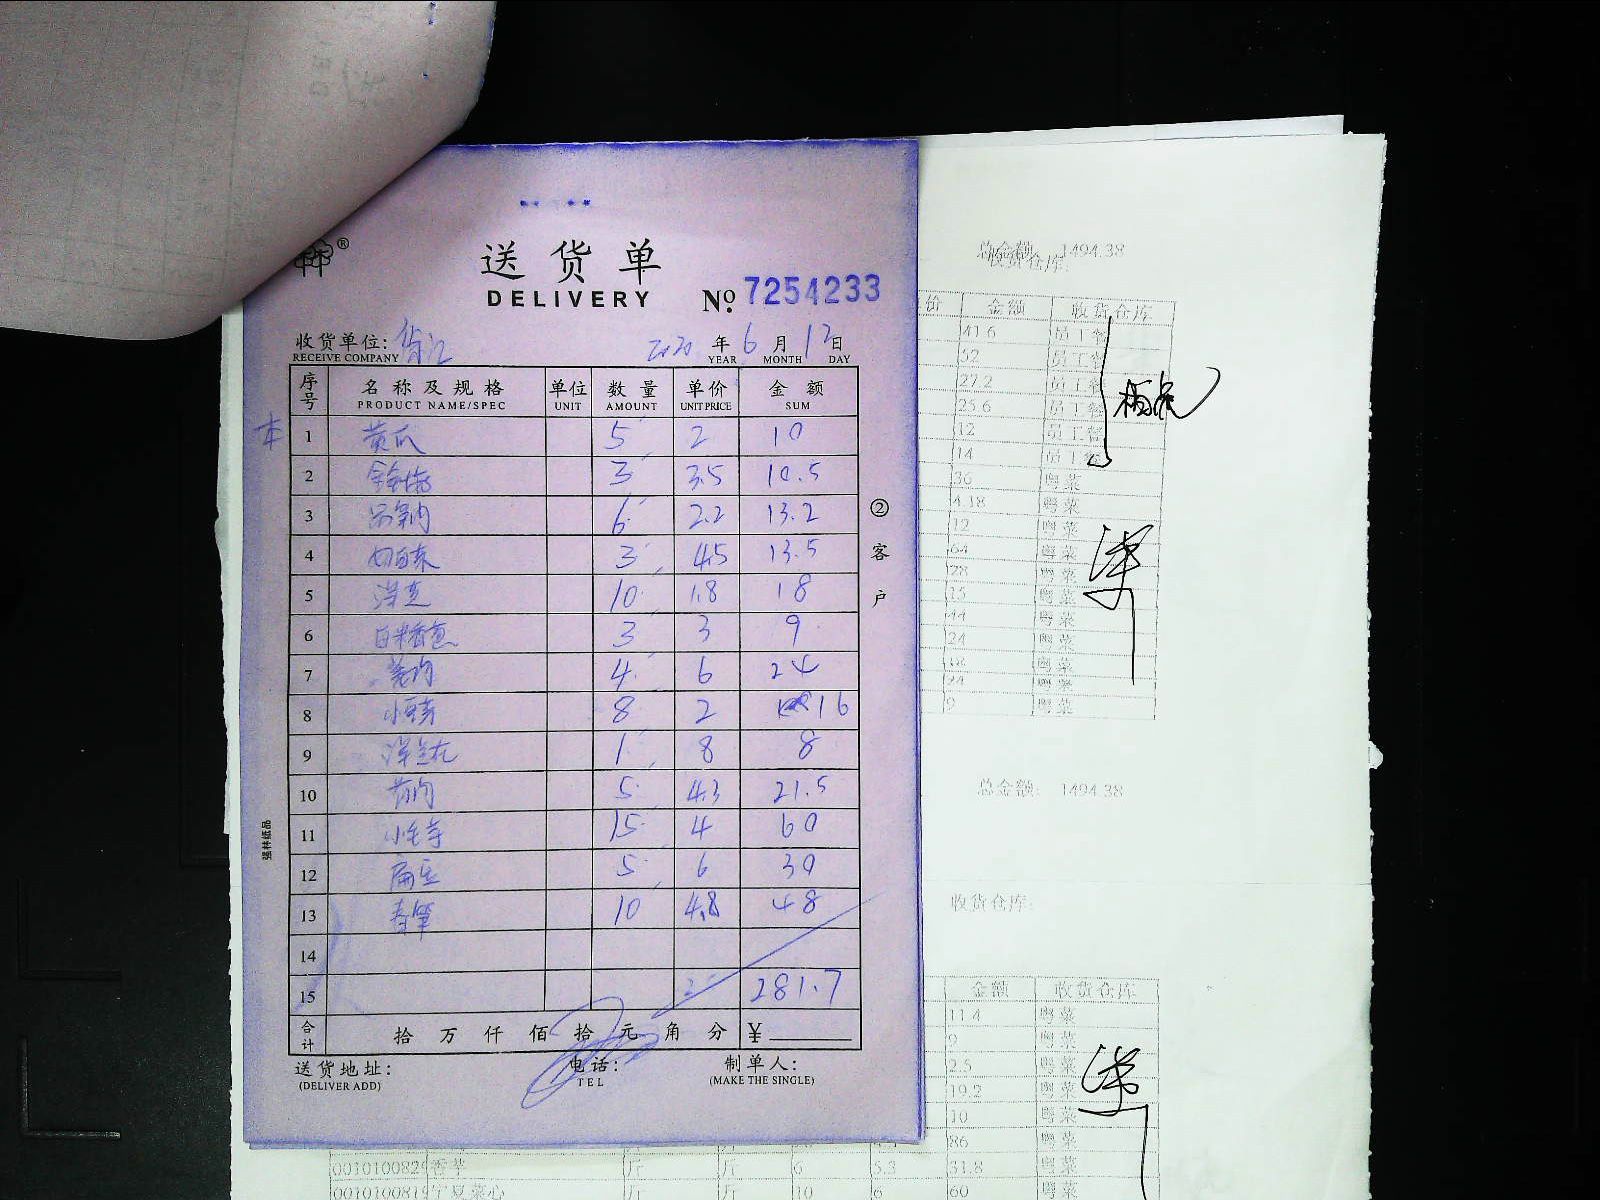 ®
送货单
DELIVERY
№ 7254233
收货单位:
RECEIVE COMPANY
2020 年 6 月 12 日
YEAR MONTH DAY
序号 名称及规格 单位 数量 单价 金额
PRODUCT NAME/SPEC UNIT AMOUNT UNIT PRICE SUM
本 1 黄瓜 5 2 10
2 3 3.5 10.5
3 6 2.2 13.2
4 3 4.5 13.5
5 洋芋 10 1.8 18
6 3 3 9
7 姜肉 4 6 24
8 8 2 16
9 洋兰花 1 8 8
10 5 4.3 21.5
11 15 4 60
12 扁豆 5 6 30
13 春笋 10 4.8 48
14
15 281.7
合计 拾 万 仟 佰 拾 元 角 分 ¥
送货地址: 电话: 制单人:
(DELIVER ADD) TEL (MAKE THE SINGLE)
②客户
强林纸品
总金额: 1494.38
收货仓库:
价 金额 收货仓库
41.6 员工餐
52 员工餐
27.2 员工餐
25.6 员工餐
12 员工餐
14 员工餐
36 粤菜
4.18 粤菜
12 粤菜
64 粤菜
28 粤菜
15 粤菜
44 粤菜
24 粤菜
18 粤菜
24 粤菜
9 粤菜
总金额: 1494.38
收货仓库:
金额 收货仓库
11.4 粤菜
9 粤菜
2.5 粤菜
19.2 粤菜
10 粤菜
86 粤菜
斤 斤 6 5.3 31.8 粤菜
宁夏菜心 斤 斤 10 6 60 粤菜